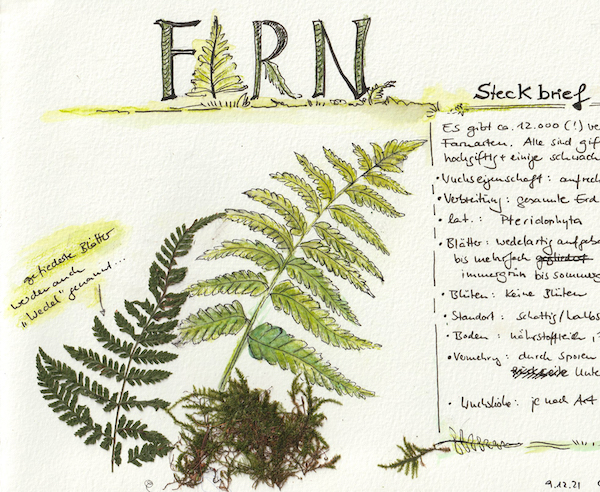 FARN
Steckbrief
Es gibt ca. 12.000 (!) ve
Farnarten. Alle sind gif
hochgiftig + einige schwach
• Wuchseigenschaft: aufrec
• Verbreitung: gesamte Erd
• lat.: Pteridophyta
• Blätter: wedelartig aufgeb
bis mehrfach gegliedert
immergrün bis sommerg
• Blüten: keine Blüten
• Standort: schattig/halbs
• Boden: nährstoffreich,
• Vermehrg: durch Sporen
Unte
• Wuchshöhe: je nach Art
9.12.21
gefiederte Blätter
werden auch
"Wedel" genannt...